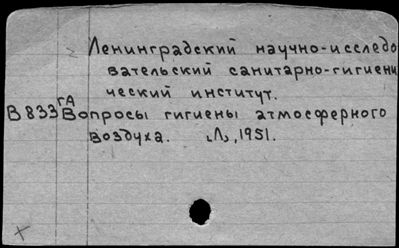 Ленинградский научно-исследо
вательский санитарно-гигиени
ческий институт.
В833 ГА Вопросы гигиены атмосферного
воздуха. „Л", 1951.